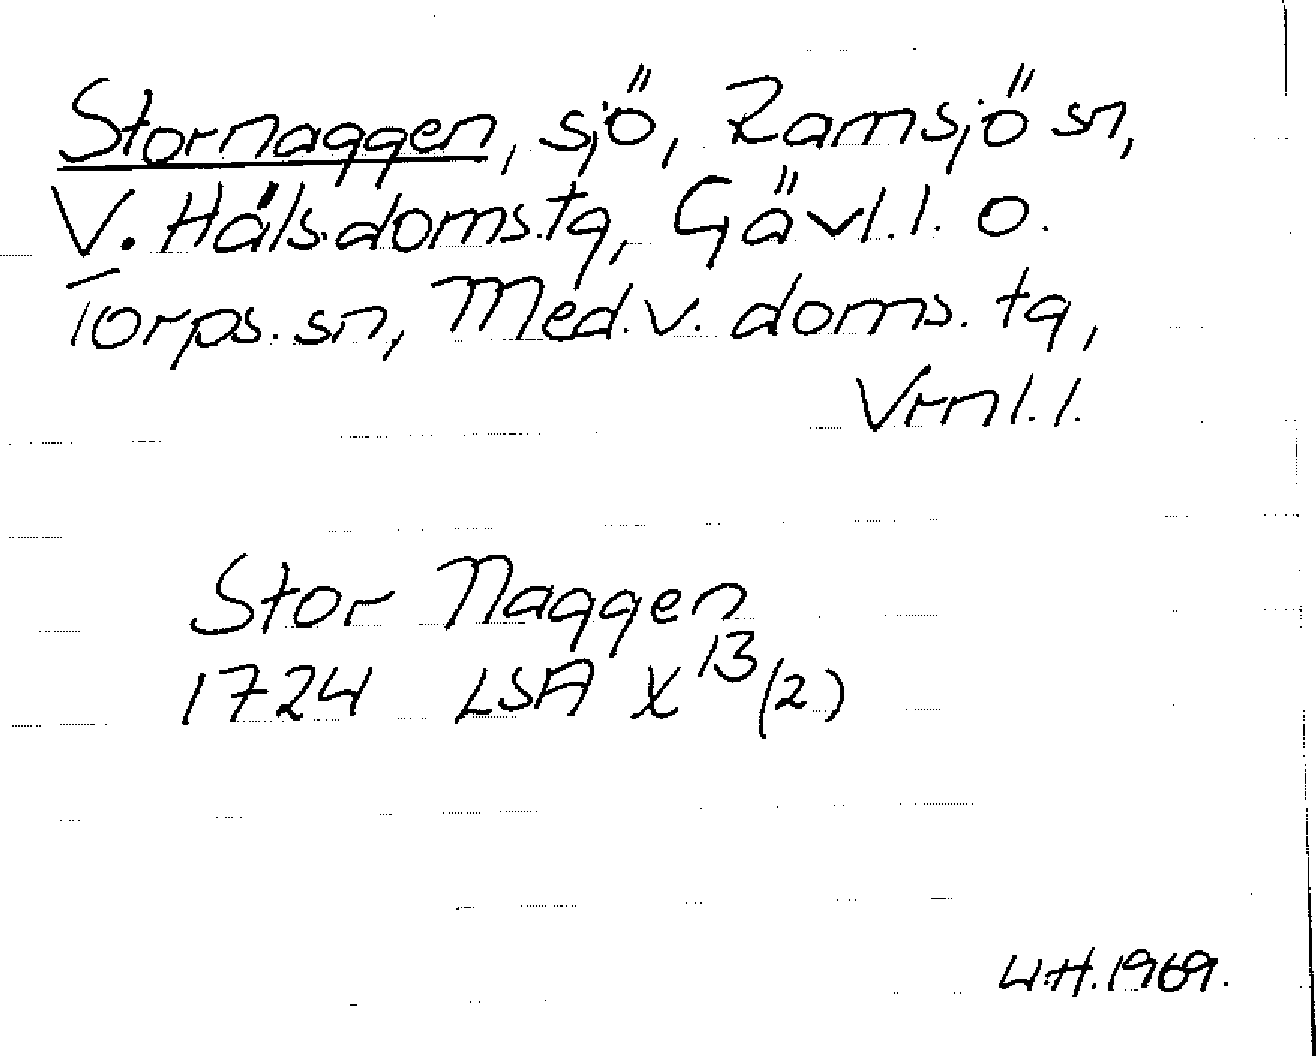 Stornaggen, sjö, Ramsjö sn,
V. Häls. doms. tg, Gävl. l. o.
Torps. sn, Med. v. doms. tg,
Vrnl. l.
Stor Naggen
1724 LSA X¹³ (2)
U.H. 1969.